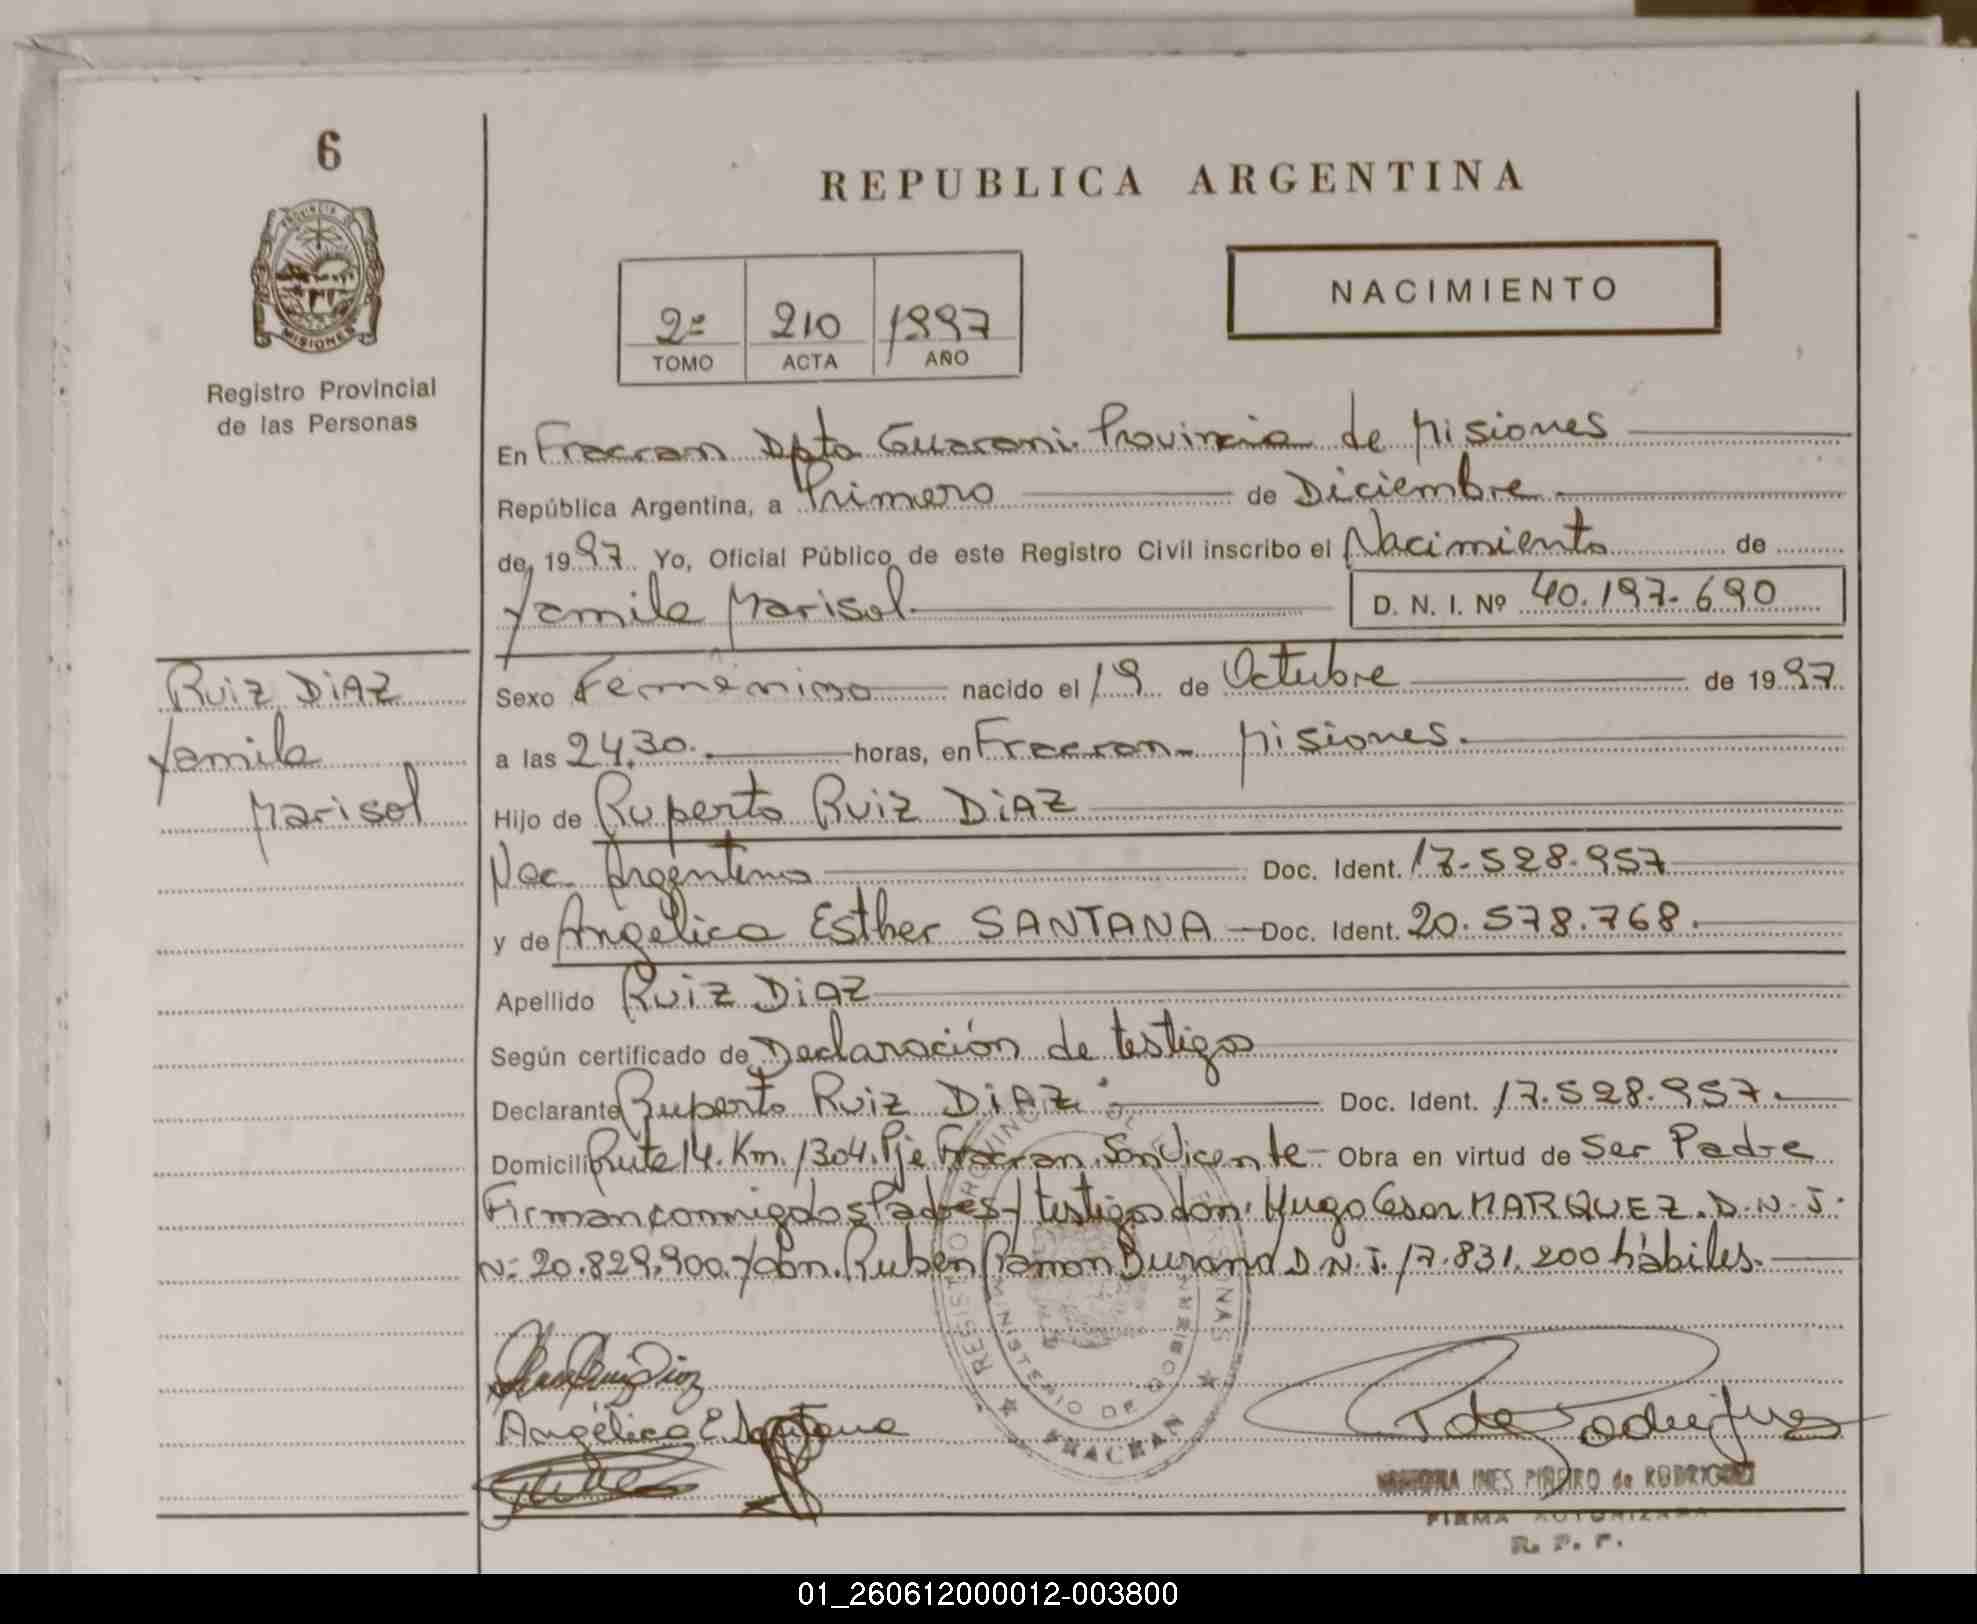 6
REPUBLICA ARGENTINA
PROVINCIA DE
MISIONES
Registro Provincial
de las Personas
NACIMIENTO
2º 210 1997
TOMO ACTA AÑO
En Fracran Dpto Guarani. Provincia de Misiones
República Argentina, a Primero de Diciembre
de 1997 Yo, Oficial Público de este Registro Civil inscribo el Nacimiento de
Yamila Marisol D. N. I. Nº 40.197.690
RUIZ DIAZ
Yamila
Marisol
Sexo Femenino nacido el 19 de Octubre de 1997
a las 24,30. horas, en Fracran. Misiones.
Hijo de Ruperto RUIZ DIAZ
Nac. Argentino Doc. Ident. 17.528.957
y de Angélica Esther SANTANA Doc. Ident. 20.578.768.
Apellido RUIZ DIAZ
Según certificado de Declaración de testigos
Declarante Ruperto RUIZ DIAZ. Doc. Ident. 17.528.957.
Domicilio Ruta 14. Km. 1304. Pje Fracran. San Vicente - Obra en virtud de Ser Padre
Firman conmigo los Padres y testigos don: Hugo Cesar MARQUEZ. D.N.I.
Nº 20.829.900. y don. Ruben Ramon Durand D.N.I. 17.831.200 hábiles.
REGISTRO PROVINCIAL DE LAS PERSONAS
MINISTERIO DE GOBIERNO
FRACRAN
Ruiz Diaz
Angélica E. Santana
P de Rodriguez
INES PIÑEIRO de RODRIGUEZ
FIRMA AUTORIZADA
R. P. P.
01_260612000012-003800